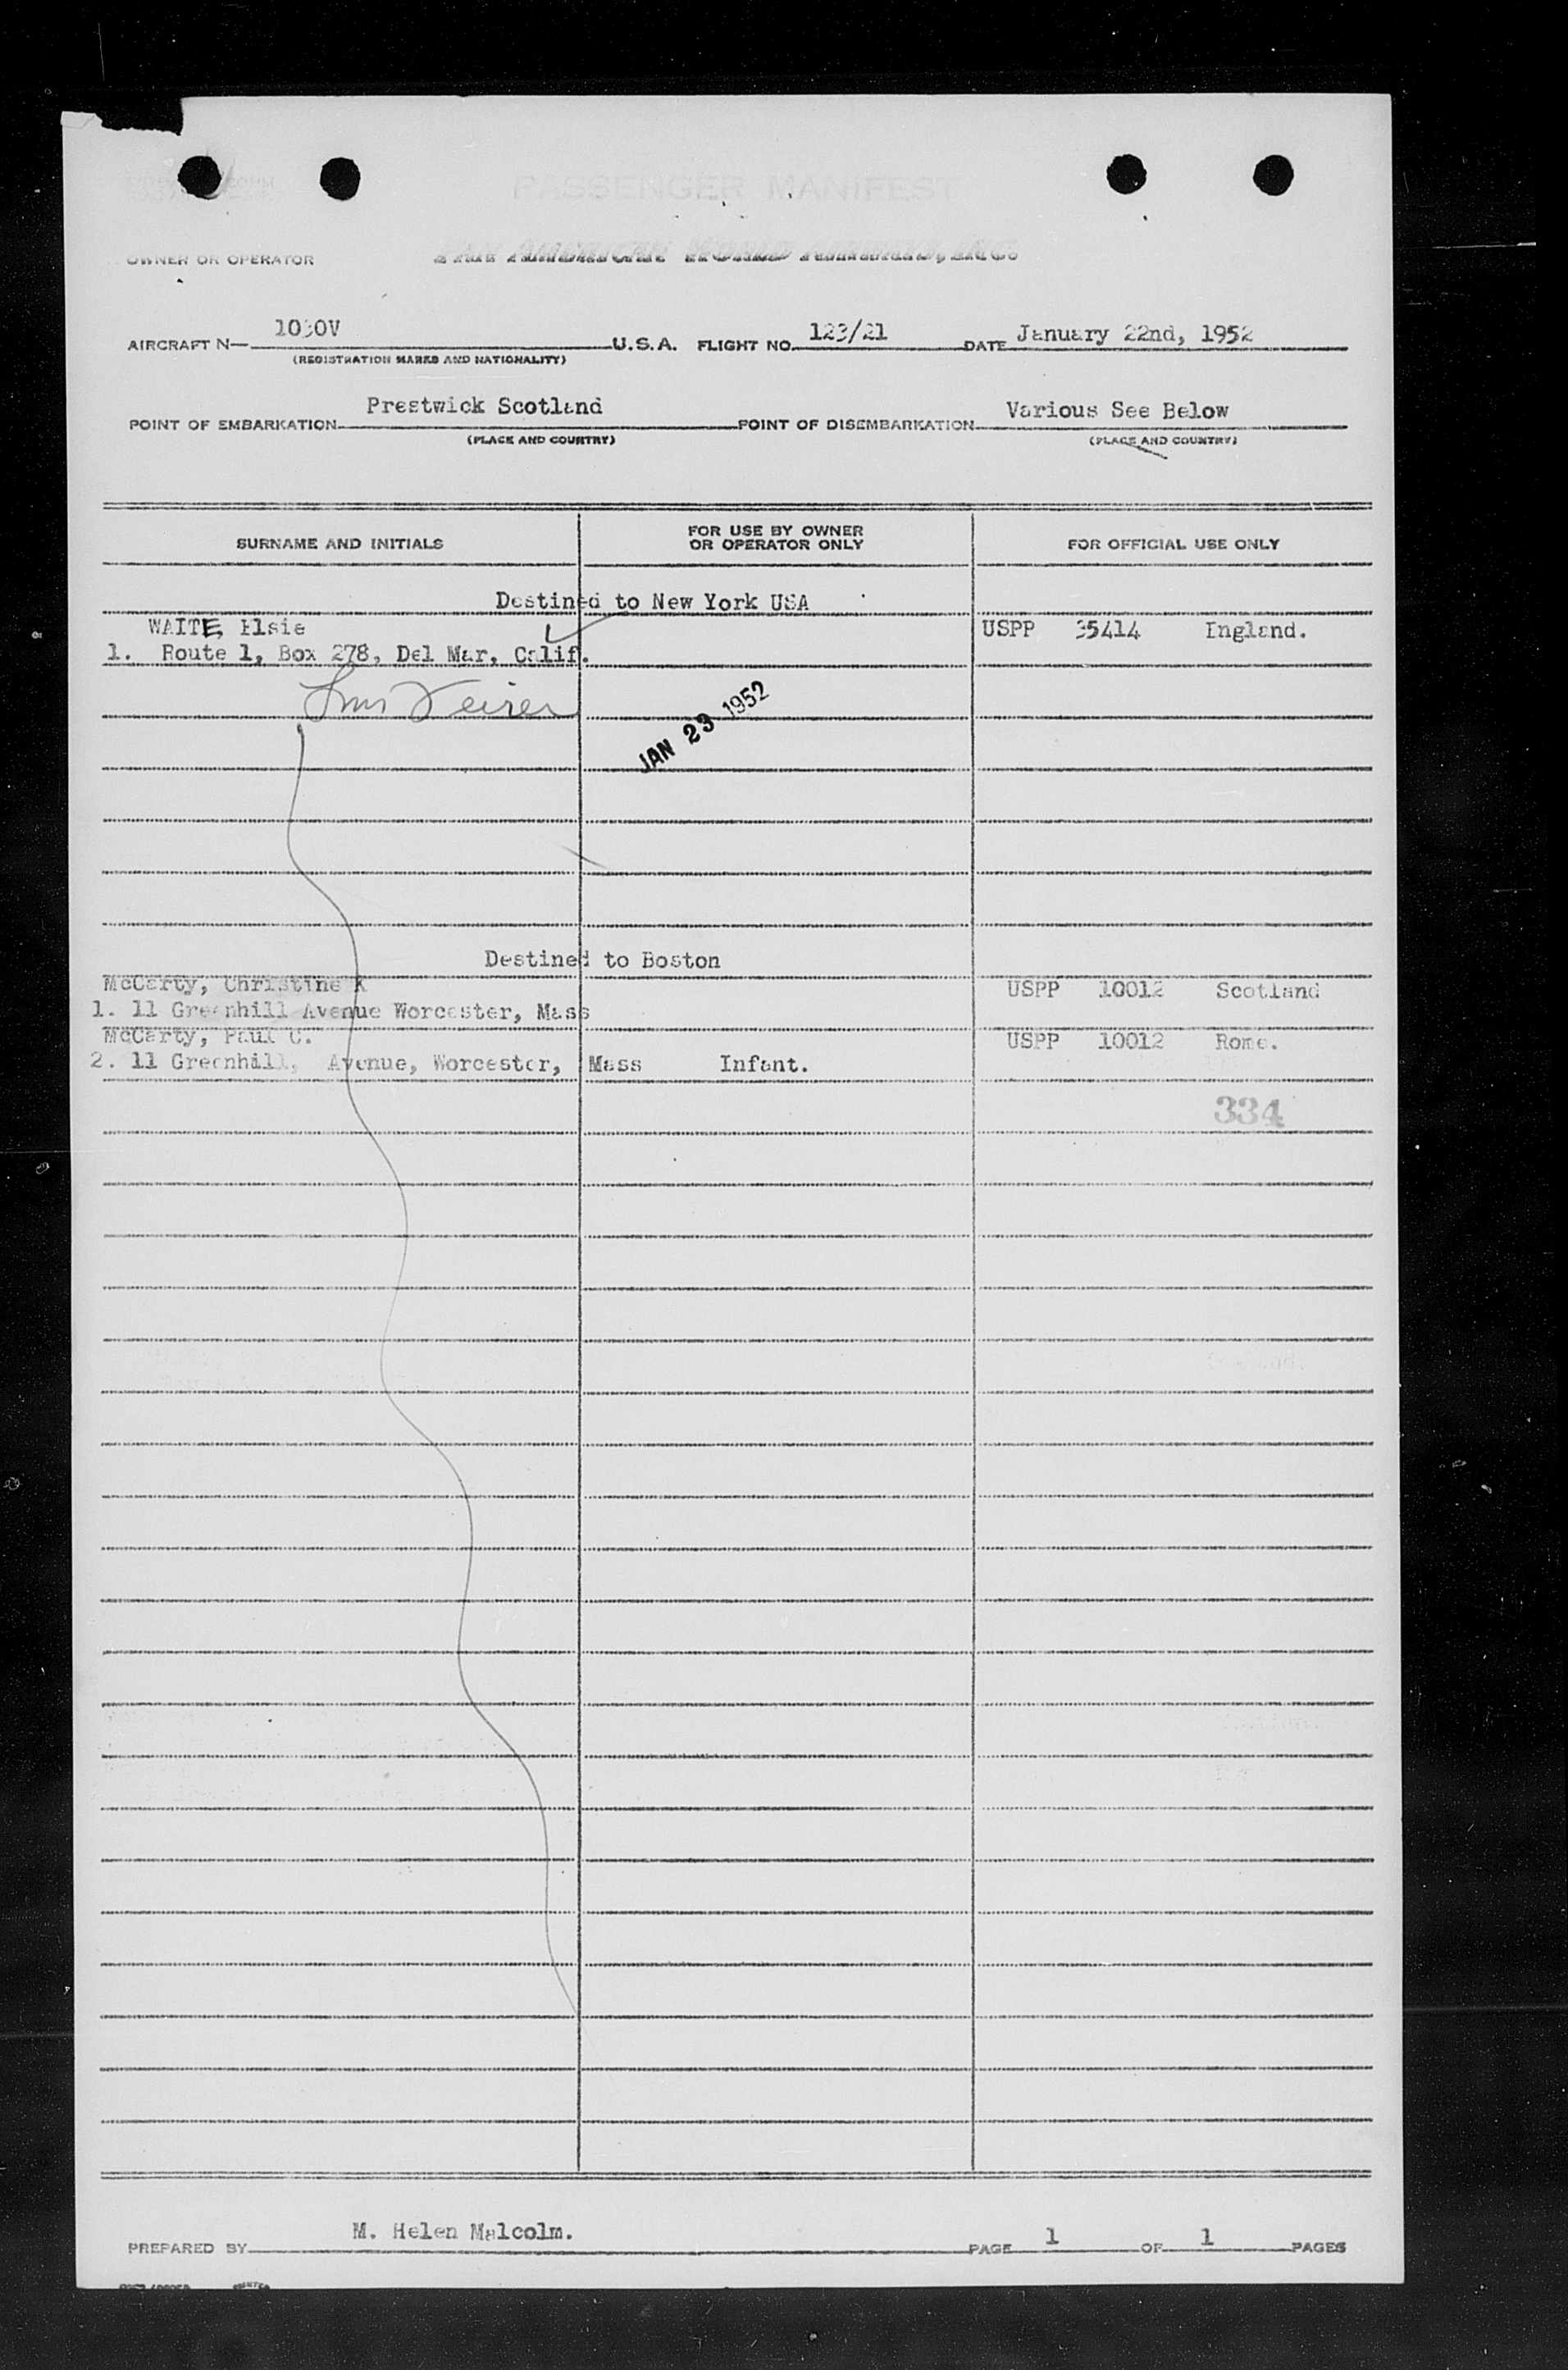 PASSENGER MANIFEST
OWNER OR OPERATOR PAN AMERICAN WORLD AIRWAYS, INC.
AIRCRAFT N— 1030V U.S.A. FLIGHT NO. 123/21 DATE January 22nd, 1952
(REGISTRATION MARKS AND NATIONALITY)
POINT OF EMBARKATION Prestwick Scotland POINT OF DISEMBARKATION Various See Below
(PLACE AND COUNTRY) (PLACE AND COUNTRY)
SURNAME AND INITIALS FOR USE BY OWNER OR OPERATOR ONLY FOR OFFICIAL USE ONLY
Destined to New York USA
WAITE, Elsie USPP 35414 England.
1. Route 1, Box 278, Del Mar, Calif.
JAN 23 1952
Destined to Boston
McCarty, Christine K USPP 10012 Scotland
1. 11 Greenhill Avenue Worcester, Mass
McCarty, Paul C. USPP 10012 Rome.
2. 11 Greenhill, Avenue, Worcester, Mass Infant.
334
PREPARED BY M. Helen Malcolm. PAGE 1 OF 1 PAGES